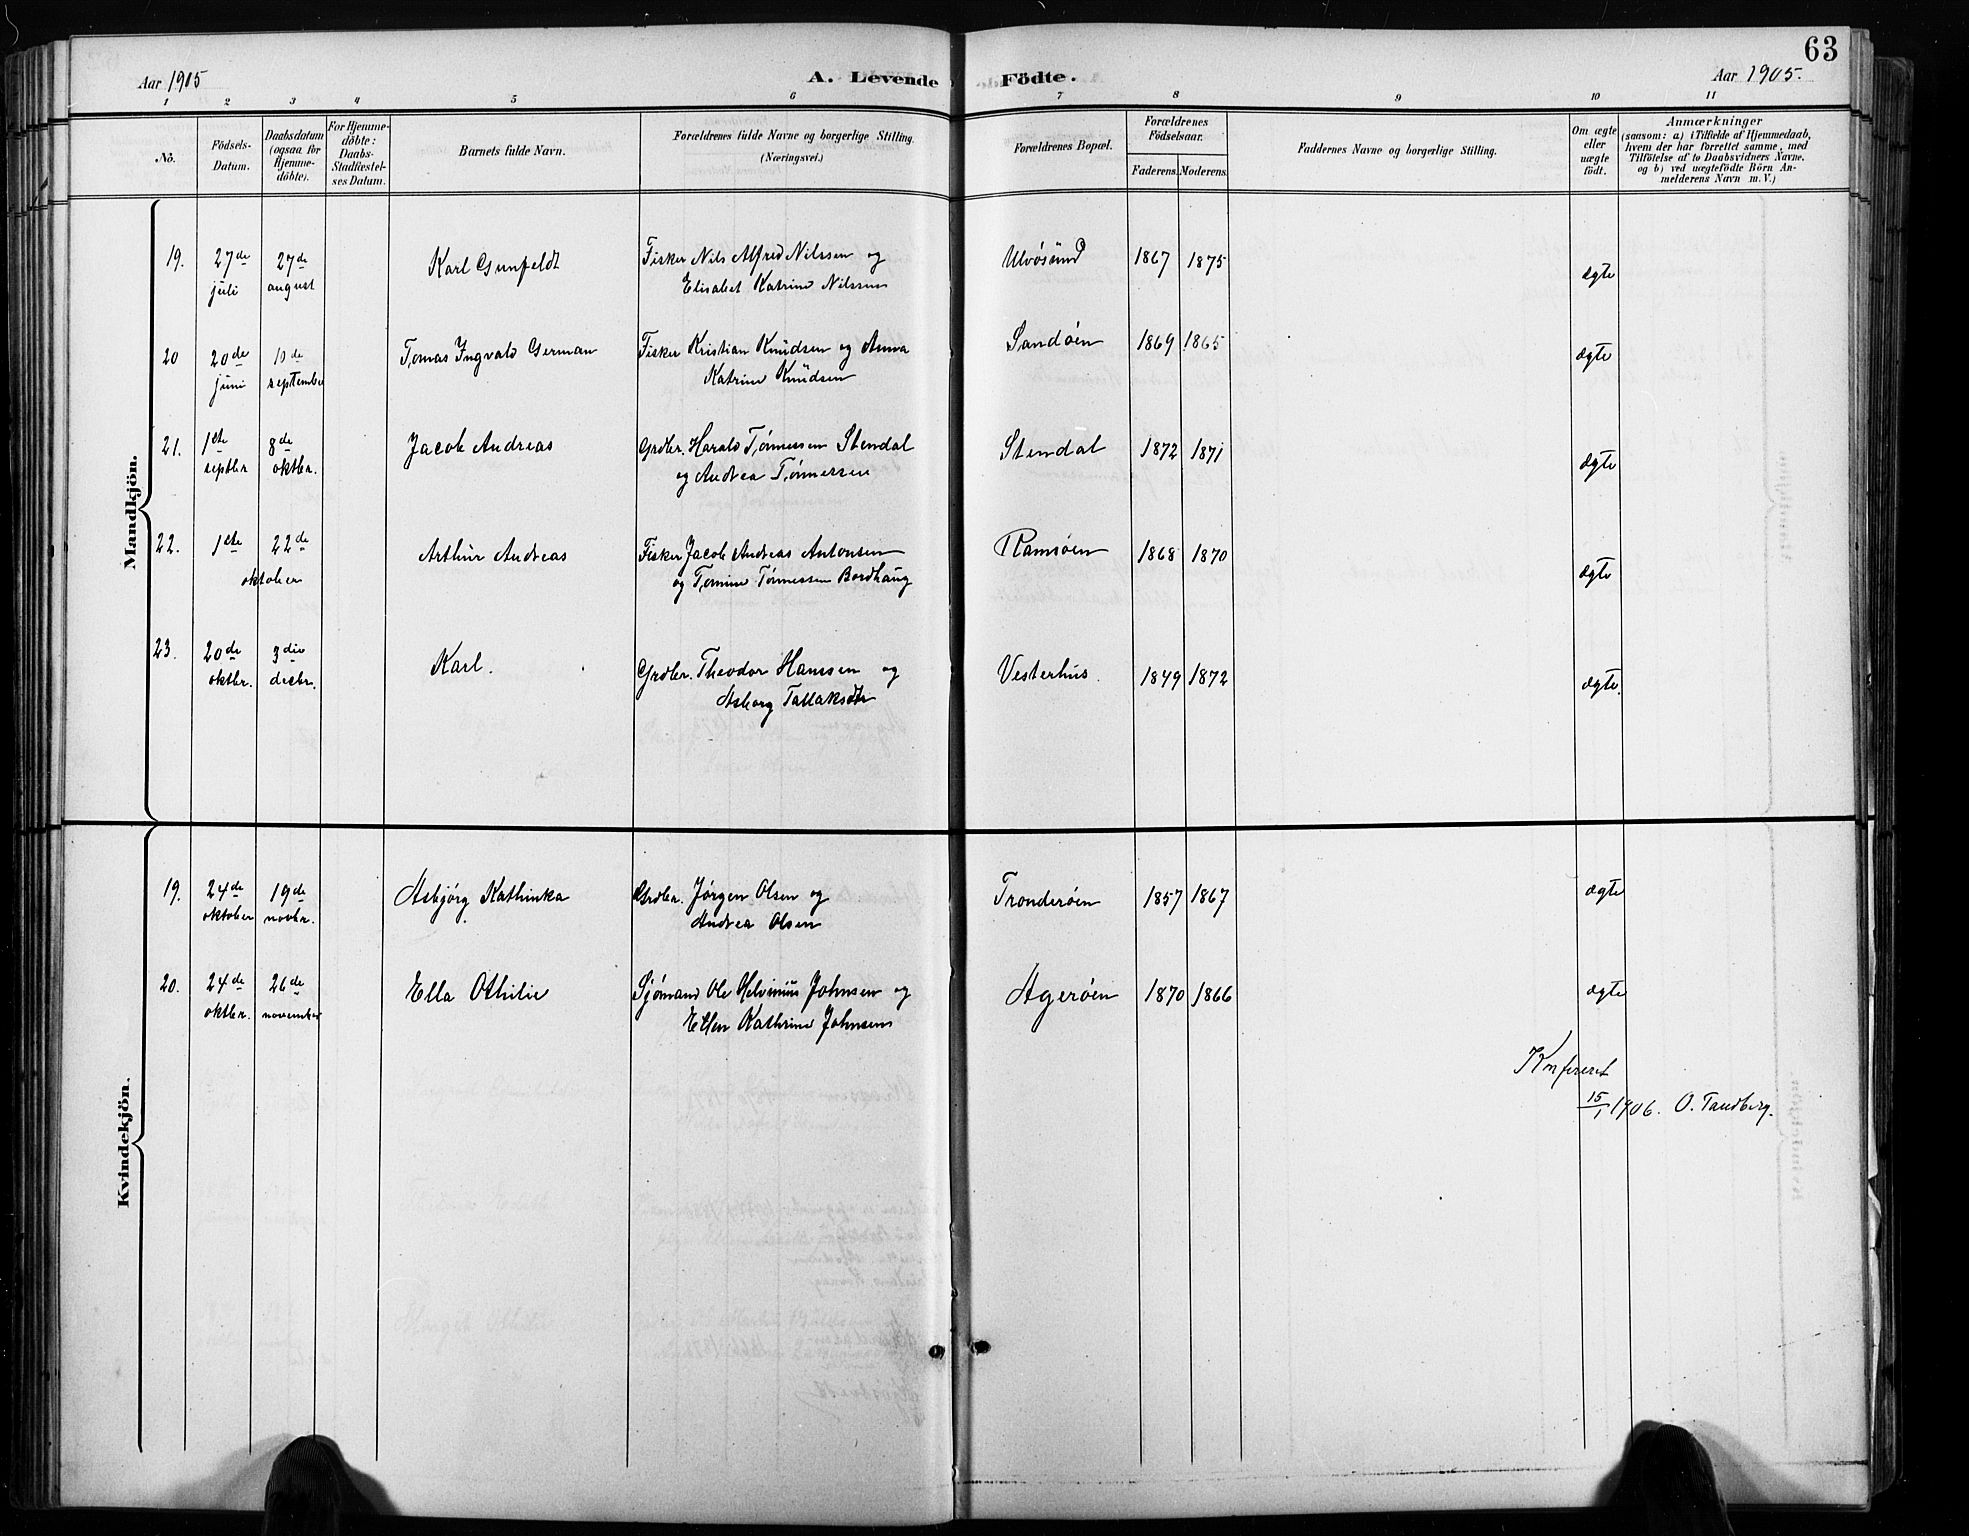 63
Aar 1905
A. Levende Födte.
Aar 1905.
1 2 3 4 5 6 7 8 9 10 11
No.
Födsels-
Datum.
Daabsdatum
(ogsaa for
Hjemme-
döbte).
For Hjemme-
döbte:
Daabs-
Stadfæstel-
ses Datum.
Barnets fulde Navn.
Forældrenes fulde Navne og borgerlige Stilling.
(Næringsvei.)
Forældrenes Bopæl.
Forældrenes
Födselsaar.
Faderens. Moderens.
Faddernes Navne og borgerlige Stilling.
Om ægte
eller
uægte
födt.
Anmærkninger
(saasom: a) i Tilfælde af Hjemmedaab,
hvem der har forrettet samme, med
Tilföielse af to Daabsvidners Navne,
og b) ved uægtefödte Börn An-
melderens Navn m. V.)
Mandkjön.
19. 27de 27de Karl Gunfeldt Fisker Nils Alfred Nilssen og Ulvösund 1867 1875 ægte
juli august Elisabet Katrine Nilssen
20 20de 10de Tomas Ingvald German Fisker Kristian Knudsen og Anna Sandöen 1869 1865 ægte
juni september Katrine Knudsen
21. 1ste 8de Jacob Andreas Grdbr. Harald Tönnessen Stendal Stendal 1872 1871 ægte
septbr oktbr. og Andrea Tönnessen
22. 1ste 22de Arthur Andreas Fisker Jacob Andreas Antonsen Ramsöen 1868 1870 ægte
oktober og Tomine Tönnessen Bordhaug
23. 20de 3die Karl. Grdbr. Theodor Hanssen og Vesterhus. 1849 1872 ægte.
oktbr. decbr. Asborg Tallaksdtr
Kvindekjön.
19. 24de 19de Asbjörg Kathinka Grdbr. Jörgen Olsen og Tronderöen 1857 1867 ægte
oktober novbr. Andrea Olsen
20. 24de 26de Ella Othilie Sjömand Ole Helvinius Johnsen og Ageröen 1870 1866 ægte
oktbr. november Ellen Kathrine Johnsen
Konfereret
15/1 1906. O. Tandberg.